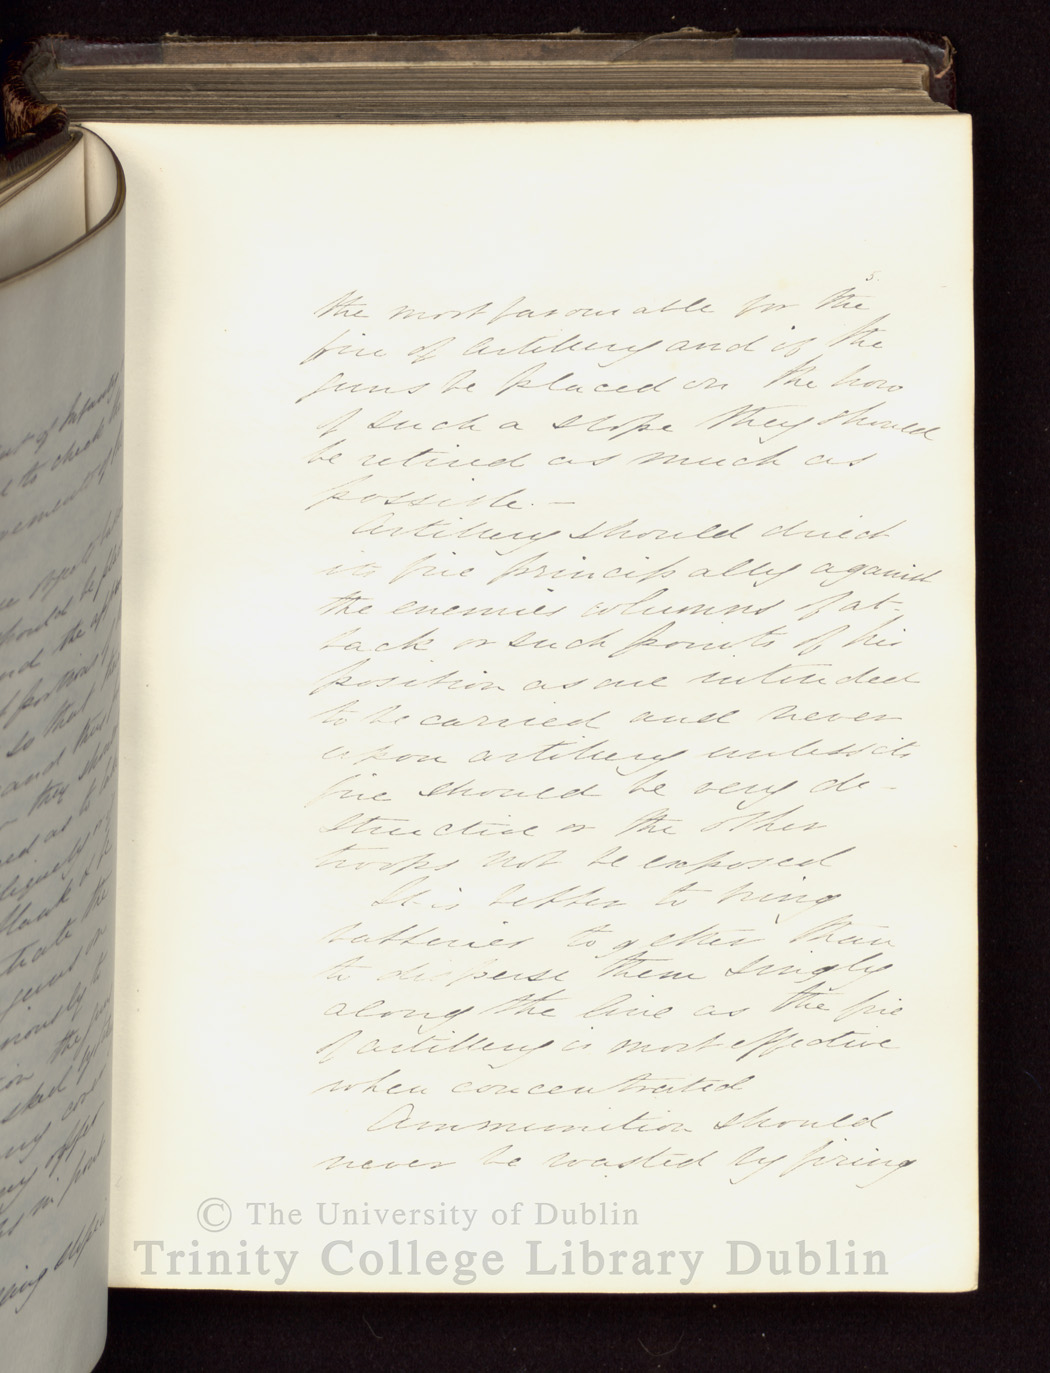 5.
the most favourable for the
fire of artillery and if the
guns be placed on the brow
of such a slope they should
be retired as much as
possible. —
Artillery should direct
its fire principally against
the enemies columns of at-
tack or such points of his
position as are intended
to be carried and never
upon artillery unless its
fire should be very de-
structive or the other
troops not be exposed
It is better to bring
batteries together than
to disperse them singly
along the line as the fire
of artillery is most effective
when concentrated
Ammunition should
never be wasted by firing
© The University of Dublin
Trinity College Library Dublin